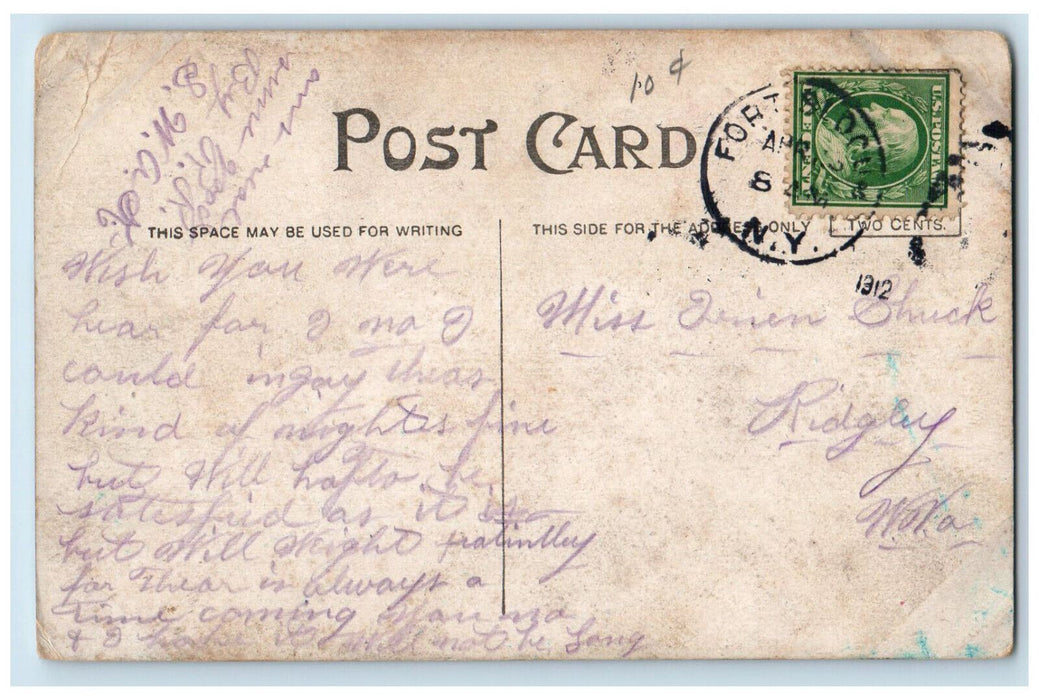 10 ¢
POST CARD
THIS SPACE MAY BE USED FOR WRITING
THIS SIDE FOR THE ADDRESS ONLY
TWO CENTS.
FORT
APR
8
N.Y.
1912
Wish You Were
hear for I no I
could injoy theas
kind of nights fine
but Will hafto be
satesfied as it is
but Will Weight
for Thear is always a
time coming You no
& I hope it Will not be Long
Miss Chuck
Ridgley
W.Va